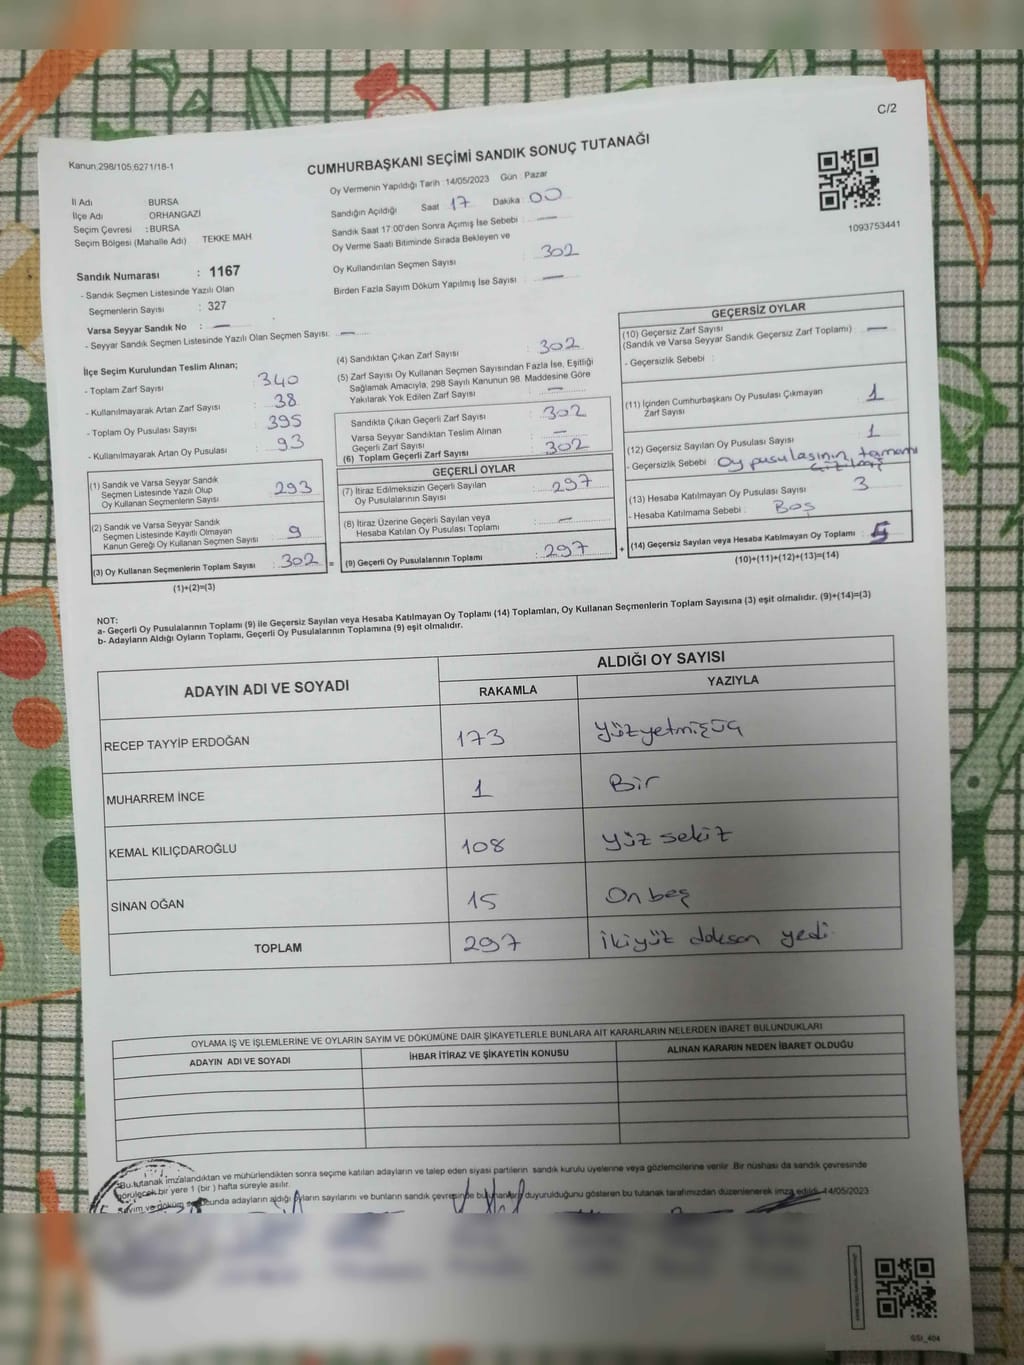 C/2
Kanun,298/105,6271/18-1
CUMHURBAŞKANI SEÇİMİ SANDIK SONUÇ TUTANAĞI
Oy Vermenin Yapıldığı Tarih :14/05/2023 Gün : Pazar
İl Adı BURSA
İlçe Adı ORHANGAZİ
Seçim Çevresi : BURSA
Seçim Bölgesi (Mahalle Adı) TEKKE MAH
Sandığın Açıldığı Saat 17 Dakika : 00
Sandık Saat 17:00'den Sonra Açımış İse Sebebi : —
Oy Verme Saati Bitiminde Sırada Bekleyen ve
Oy Kullandırılan Seçmen Sayısı : 302
Birden Fazla Sayım Döküm Yapılmış İse Sayısı : —
1093753441
Sandık Numarası : 1167
- Sandık Seçmen Listesinde Yazılı Olan
Seçmenlerin Sayısı : 327
Varsa Seyyar Sandık No : —
- Seyyar Sandık Seçmen Listesinde Yazılı Olan Seçmen Sayısı: —
İlçe Seçim Kurulundan Teslim Alınan;
- Toplam Zarf Sayısı : 340
- Kullanılmayarak Artan Zarf Sayısı : 38
- Toplam Oy Pusulası Sayısı : 395
- Kullanılmayarak Artan Oy Pusulası : 93
(1) Sandık ve Varsa Seyyar Sandık
Seçmen Listesinde Yazılı Olup
Oy Kullanan Seçmenlerin Sayısı : 293
(2) Sandık ve Varsa Seyyar Sandık
Seçmen Listesinde Kayıtlı Olmayan
Kanun Gereği Oy Kullanan Seçmen Sayısı : 9
(3) Oy Kullanan Seçmenlerin Toplam Sayısı : 302 =
(1)+(2)=(3)
(4) Sandıktan Çıkan Zarf Sayısı : 302
(5) Zarf Sayısı Oy Kullanan Seçmen Sayısından Fazla İse, Eşitliği
Sağlamak Amacıyla, 298 Sayılı Kanunun 98. Maddesine Göre
Yakılarak Yok Edilen Zarf Sayısı : —
Sandıkta Çıkan Geçerli Zarf Sayısı : 302
Varsa Seyyar Sandıktan Teslim Alınan
Geçerli Zarf Sayısı : —
(6) Toplam Geçerli Zarf Sayısı : 302
GEÇERLİ OYLAR
(7) İtiraz Edilmeksizin Geçerli Sayılan
Oy Pusulalarının Sayısı : 297
(8) İtiraz Üzerine Geçerli Sayılan veya
Hesaba Katılan Oy Pusulası Toplamı : —
(9) Geçerli Oy Pusulalarının Toplamı : 297 +
GEÇERSİZ OYLAR
(10) Geçersiz Zarf Sayısı
(Sandık ve Varsa Seyyar Sandık Geçersiz Zarf Toplamı) : —
- Geçersizlik Sebebi :
(11) İçinden Cumhurbaşkanı Oy Pusulası Çıkmayan
Zarf Sayısı : 1
(12) Geçersiz Sayılan Oy Pusulası Sayısı : 1
- Geçersizlik Sebebi : Oy pusulasının tamamı
(13) Hesaba Katılmayan Oy Pusulası Sayısı : 3
- Hesaba Katılmama Sebebi : Boş
(14) Geçersiz Sayılan veya Hesaba Katılmayan Oy Toplamı : 5
(10)+(11)+(12)+(13)=(14)
NOT:
a- Geçerli Oy Pusulalarının Toplamı (9) ile Geçersiz Sayılan veya Hesaba Katılmayan Oy Toplamı (14) Toplamları, Oy Kullanan Seçmenlerin Toplam Sayısına (3) eşit olmalıdır. (9)+(14)=(3)
b- Adayların Aldığı Oyların Toplamı, Geçerli Oy Pusulalarının Toplamına (9) eşit olmalıdır.
ADAYIN ADI VE SOYADI ALDIĞI OY SAYISI
RAKAMLA YAZIYLA
RECEP TAYYİP ERDOĞAN 173 yüzyetmişüç
MUHARREM İNCE 1 Bir
KEMAL KILIÇDAROĞLU 108 yüz sekiz
SİNAN OĞAN 15 On beş
TOPLAM 297 ikiyüz doksan yedi
OYLAMA İŞ VE İŞLEMLERİNE VE OYLARIN SAYIM VE DÖKÜMÜNE DAİR ŞİKAYETLERLE BUNLARA AİT KARARLARIN NELERDEN İBARET BULUNDUKLARI
ADAYIN ADI VE SOYADI İHBAR İTİRAZ VE ŞİKAYETİN KONUSU ALINAN KARARIN NEDEN İBARET OLDUĞU
Bu tutanak imzalandıktan ve mühürlendikten sonra seçime katılan adayların ve talep eden siyasi partilerin sandık kurulu üyelerine veya gözlemcilerine verilir. Bir nüshası da sandık çevresinde
görülecek bir yere 1 (bir) hafta süreyle asılır.
Sayım ve döküm sonucunda adayların aldığı oyların sayılarını ve bunların sandık çevresinde duyurulduğunu gösteren bu tutanak tarafımızdan düzenlenerek imza edildi. 14/05/2023
SSI_404